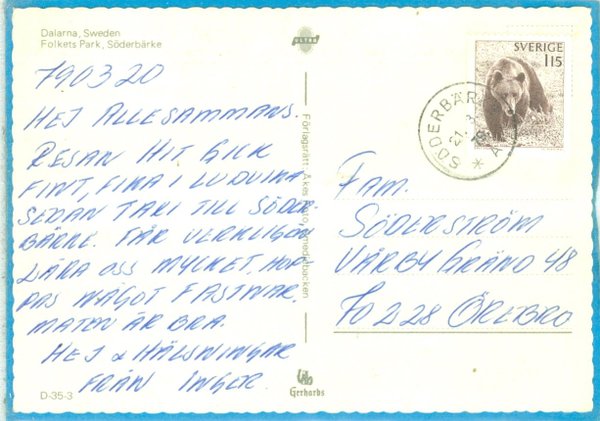 Dalarna, Sweden
Folkets Park, Söderbärke
ULTRA
790320
HEJ ALLESAMMANS.
RESAN HIT GICK
FINT, FIKA I LUDVIKA
SEDAN TAXI TILL SÖDER-
BÄRKE. FÅR VERKLIGEN
LÄRA OSS MYCKET, HOP-
PAS NÅGOT FASTNAR,
MATEN ÄR BRA.
HEJ & HÄLSNINGAR
FRÅN INGER.
D-35-3
Förlagsrätt: Åkes foto, Smedjebacken
Gerhards
SVERIGE
115
SÖDERBÄRKE
21. 3
79
FAM.
SÖDERSTRÖM
VÄRBY GRÄND 48
702 28 ÖREBRO